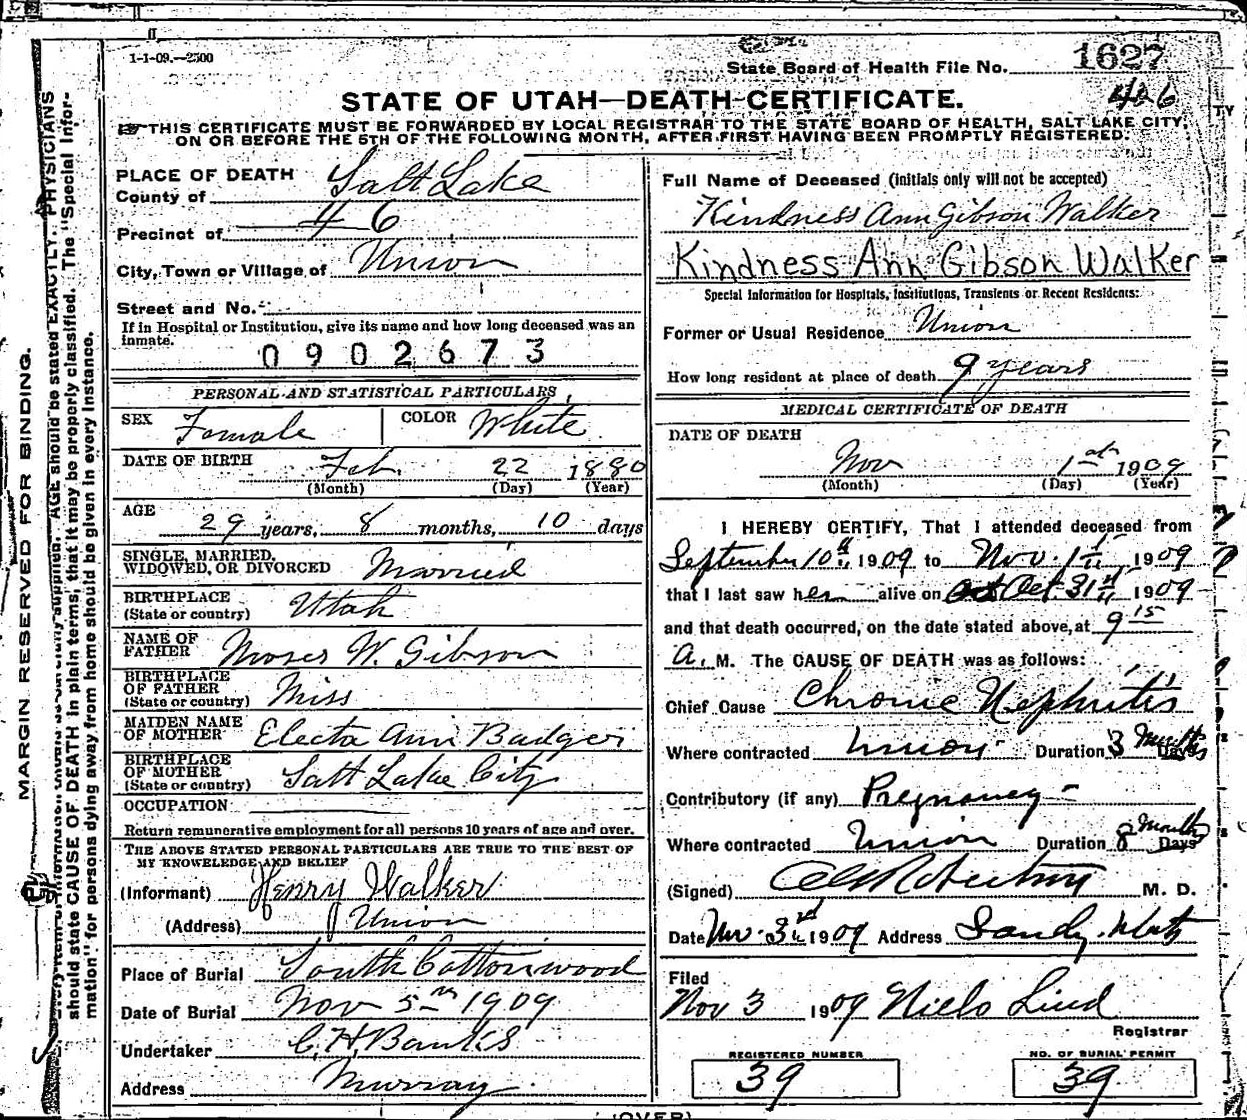 1-1-09.—2500
State Board of Health File No. 1627
426
STATE OF UTAH—DEATH CERTIFICATE.
THIS CERTIFICATE MUST BE FORWARDED BY LOCAL REGISTRAR TO THE STATE BOARD OF HEALTH, SALT LAKE CITY,
ON OR BEFORE THE 5TH OF THE FOLLOWING MONTH, AFTER FIRST HAVING BEEN PROMPTLY REGISTERED.
MARGIN RESERVED FOR BINDING.
AGE should be stated EXACTLY. PHYSICIANS
should state CAUSE OF DEATH in plain terms, that it may be properly classified. The "Special Infor-
mation" for persons dying away from home should be given in every instance.
PLACE OF DEATH
County of Salt Lake
Precinct of 46
City, Town or Village of Union
Street and No.
If in Hospital or Institution, give its name and how long deceased was an
inmate.
0902673
PERSONAL AND STATISTICAL PARTICULARS
SEX Female COLOR White
DATE OF BIRTH Feb 22 1880
(Month) (Day) (Year)
AGE
29 years, 8 months, 10 days
SINGLE, MARRIED,
WIDOWED, OR DIVORCED Married
BIRTHPLACE
(State or country) Utah
NAME OF
FATHER Moses W. Gibson
BIRTHPLACE
OF FATHER
(State or country) Miss
MAIDEN NAME
OF MOTHER Electa Ann Badger
BIRTHPLACE
OF MOTHER
(State or country) Salt Lake City
OCCUPATION
Return remunerative employment for all persons 10 years of age and over.
THE ABOVE STATED PERSONAL PARTICULARS ARE TRUE TO THE BEST OF
MY KNOWLEDGE AND BELIEF
(Informant) Henry Walker
(Address) Union
Place of Burial South Cottonwood
Date of Burial Nov 5th 1909
Undertaker C. H. Banks
Address Murray
Full Name of Deceased (initials only will not be accepted)
Kindness Ann Gibson Walker
Kindness Ann Gibson Walker
Special Information for Hospitals, Institutions, Transients or Recent Residents:
Former or Usual Residence Union
How long resident at place of death 9 years
MEDICAL CERTIFICATE OF DEATH
DATE OF DEATH
Nov 1st 1909
(Month) (Day) (Year)
I HEREBY CERTIFY, That I attended deceased from
September 10th 1909 to Nov. 1st 1909
that I last saw her alive on Oct 31st 1909
and that death occurred, on the date stated above, at 9 15
A. M. The CAUSE OF DEATH was as follows:
Chief Cause Chronic Nephritis
Where contracted Union Duration 3 Months Days
Contributory (if any) Pregnancy
Where contracted Union Duration 8 Months Days
(Signed) Robertson M. D.
Date Nov. 3rd 1909 Address Sandy, Utah
Filed
Nov 3 1909 Niels Lind
Registrar
REGISTERED NUMBER
39
NO. OF BURIAL PERMIT
39
(OVER)